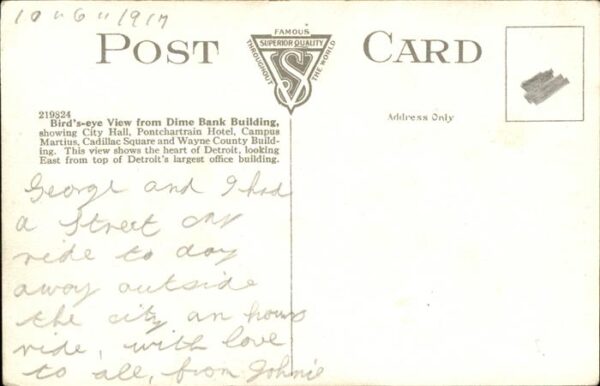 10 " 6 " 1917
POST CARD
FAMOUS
SUPERIOR QUALITY
THROUGHOUT THE WORLD
S
Address Only
219824
Bird's-eye View from Dime Bank Building,
showing City Hall, Pontchartrain Hotel, Campus
Martius, Cadillac Square and Wayne County Build-
ing. This view shows the heart of Detroit, looking
East from top of Detroit's largest office building.
George and I had
a street car
ride to day
away outside
the city an hours
ride, with love
to all, from Johnie